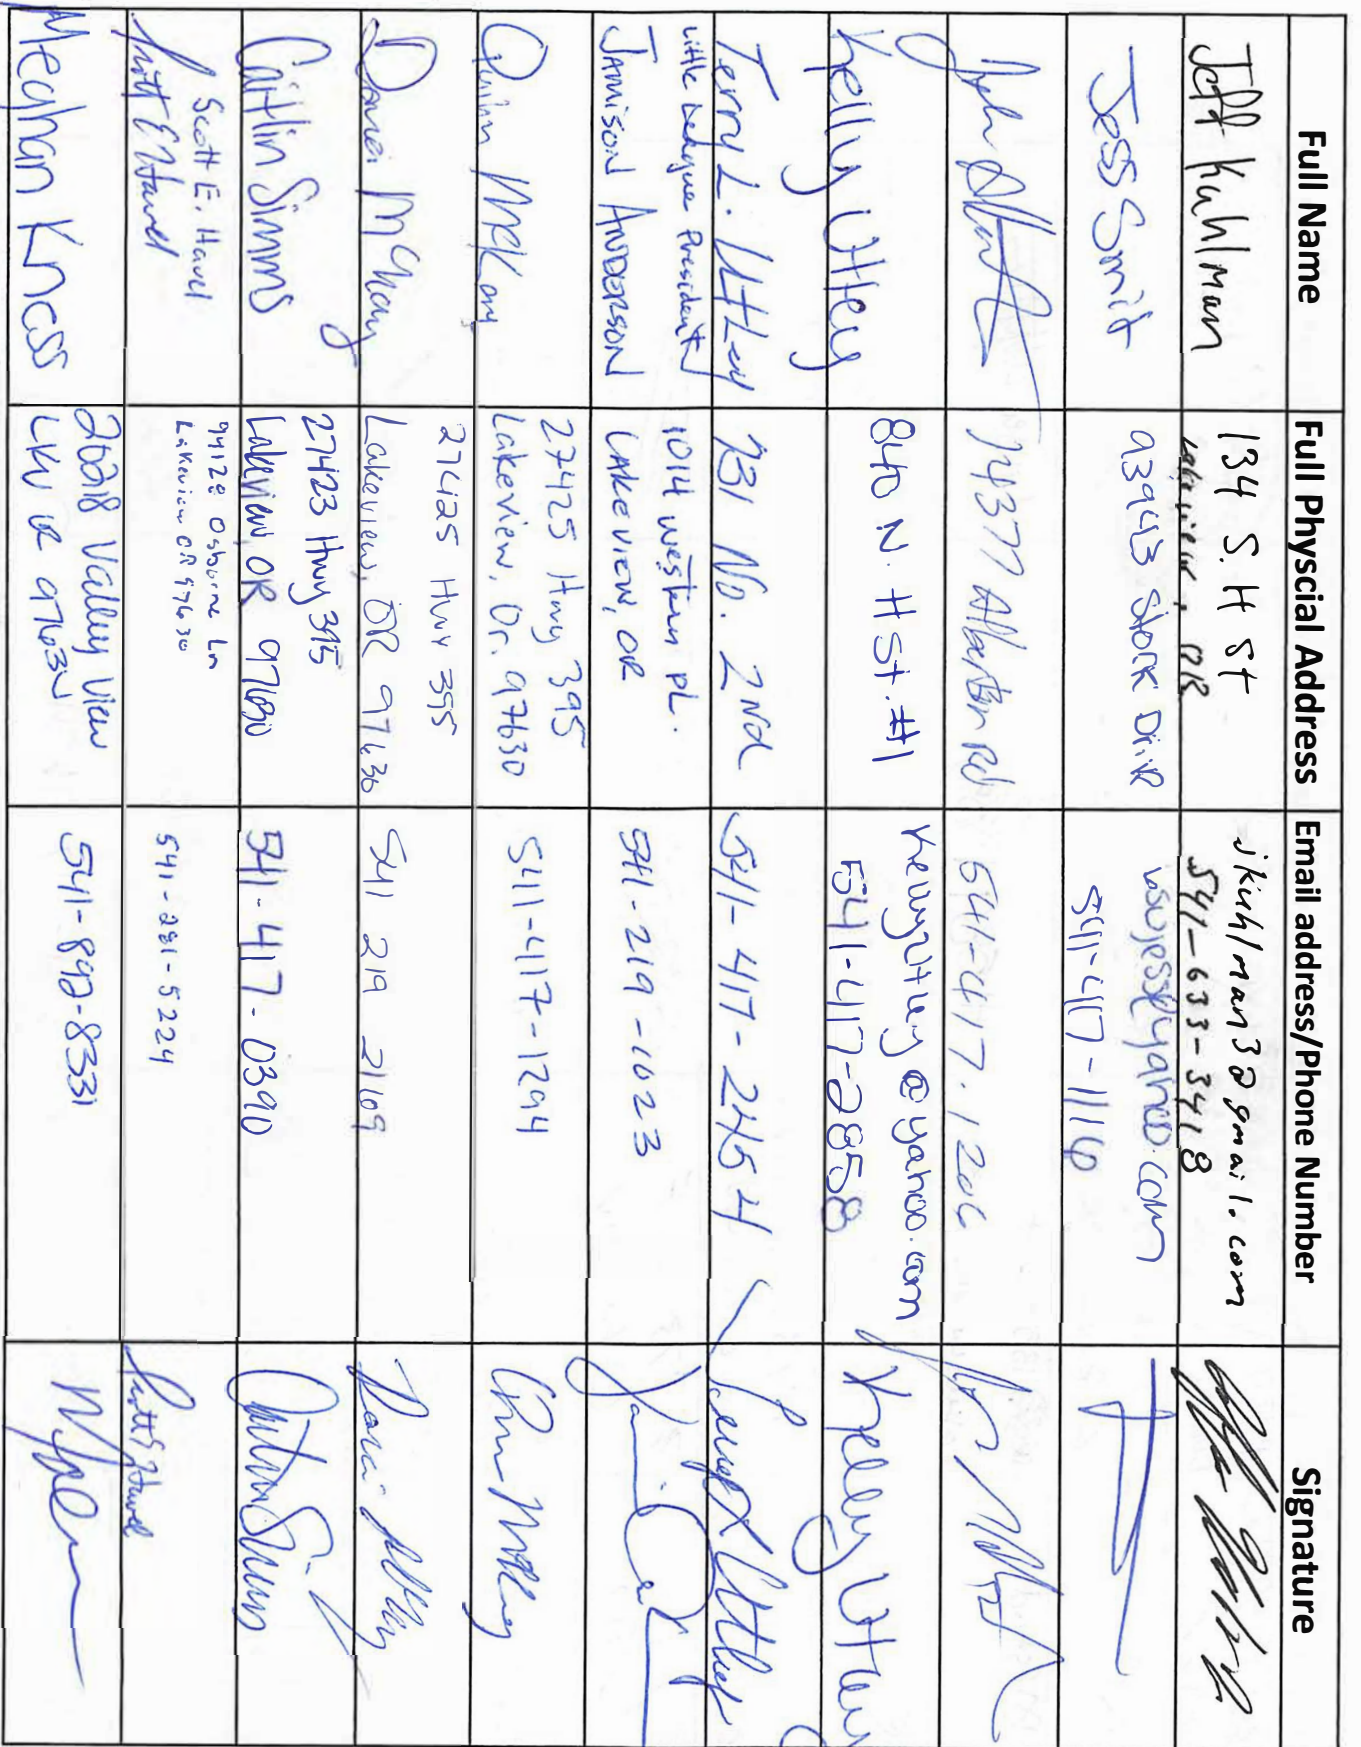 Full Name
Full Physcial Address
Email address/Phone Number
Signature
Jeff Kuhlman
134 S. H St
Lakeview, OR
jkuhlman3@gmail.com
541-633-3418
Jess Smit
93943 Stork
wsujess@yahoo.com
541-417-1116
541-417-1206
Kelly Utley
840 N. H St. #1
kellyrutley@yahoo.com
541-417-2858
Kelly Utley
Terry L. Utley
931 No. 2nd
541-417-2454
Little League President
JAMISON ANDERSON
1014 western pl.
LAKEVIEW, OR
541-219-1023
Quinn McKay
27425 Hwy 395
Lakeview, Or. 97630
541-417-1294
McKay
27425 Hwy 395
Lakeview, OR 97630
541 219 2169
Caitlin Simms
27423 Hwy 395
Lakeview, OR 97630
541-417-0390
Scott E. Havel
Scott E Havel
94120 Osborne Ln
Lakeview OR 97630
541-281-5224
Scott E Havel
Meghan Knoss
Valley View
LKV OR 97630
541-892-8331